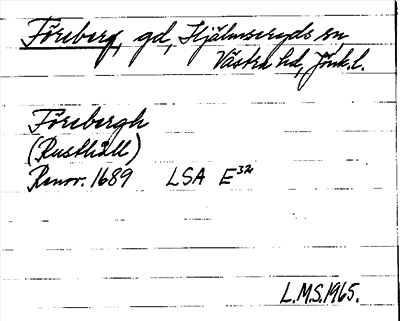 Föreberg, gd, Hjälmseryds sn,
Västra hd, Jönk.l.
Förebergh
(Rusthåll)
Renov. 1689 LSA E³²
L.M.S. 1965.